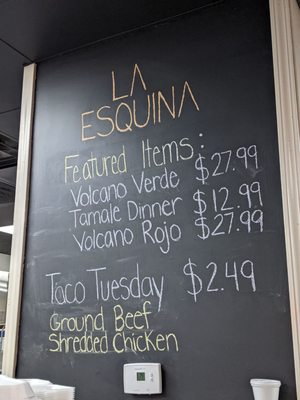 LA
ESQUINA
Featured Items:
Volcano Verde $27.99
Tamale Dinner $12.99
Volcano Rojo $27.99
Taco Tuesday $2.49
Ground Beef
Shredded Chicken